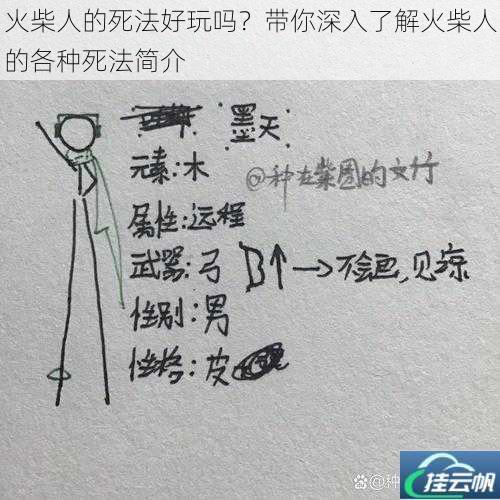 火柴人的死法好玩吗？带你深入了解火柴人
的各种死法简介
墨天
元素:木
@种在紫园的文竹
属性:远程
武器:弓 →不会画,见谅
性别:男
性格:皮
@种
挂云帆